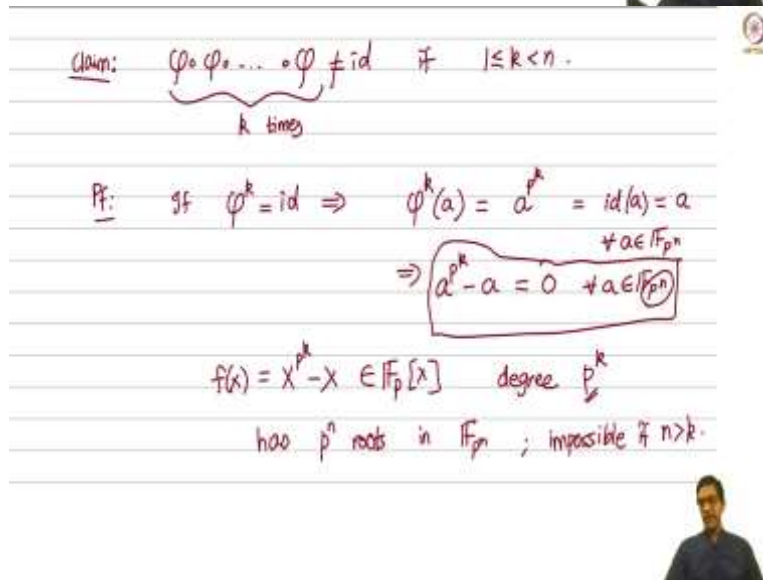 Claim: φ∘φ∘....∘φ ≠ id if 1≤k<n.
k times
Pf: If φ^k = id ⇒ φ^k(a) = a^{p^k} = id(a) = a
∀a∈𝔽_{p^n}
⇒ a^{p^k} - a = 0 ∀a∈𝔽_{p^n}
f(x) = X^{p^k} - X ∈ 𝔽_p[X] degree p^k
has p^n roots in 𝔽_{p^n} ; impossible if n>k.